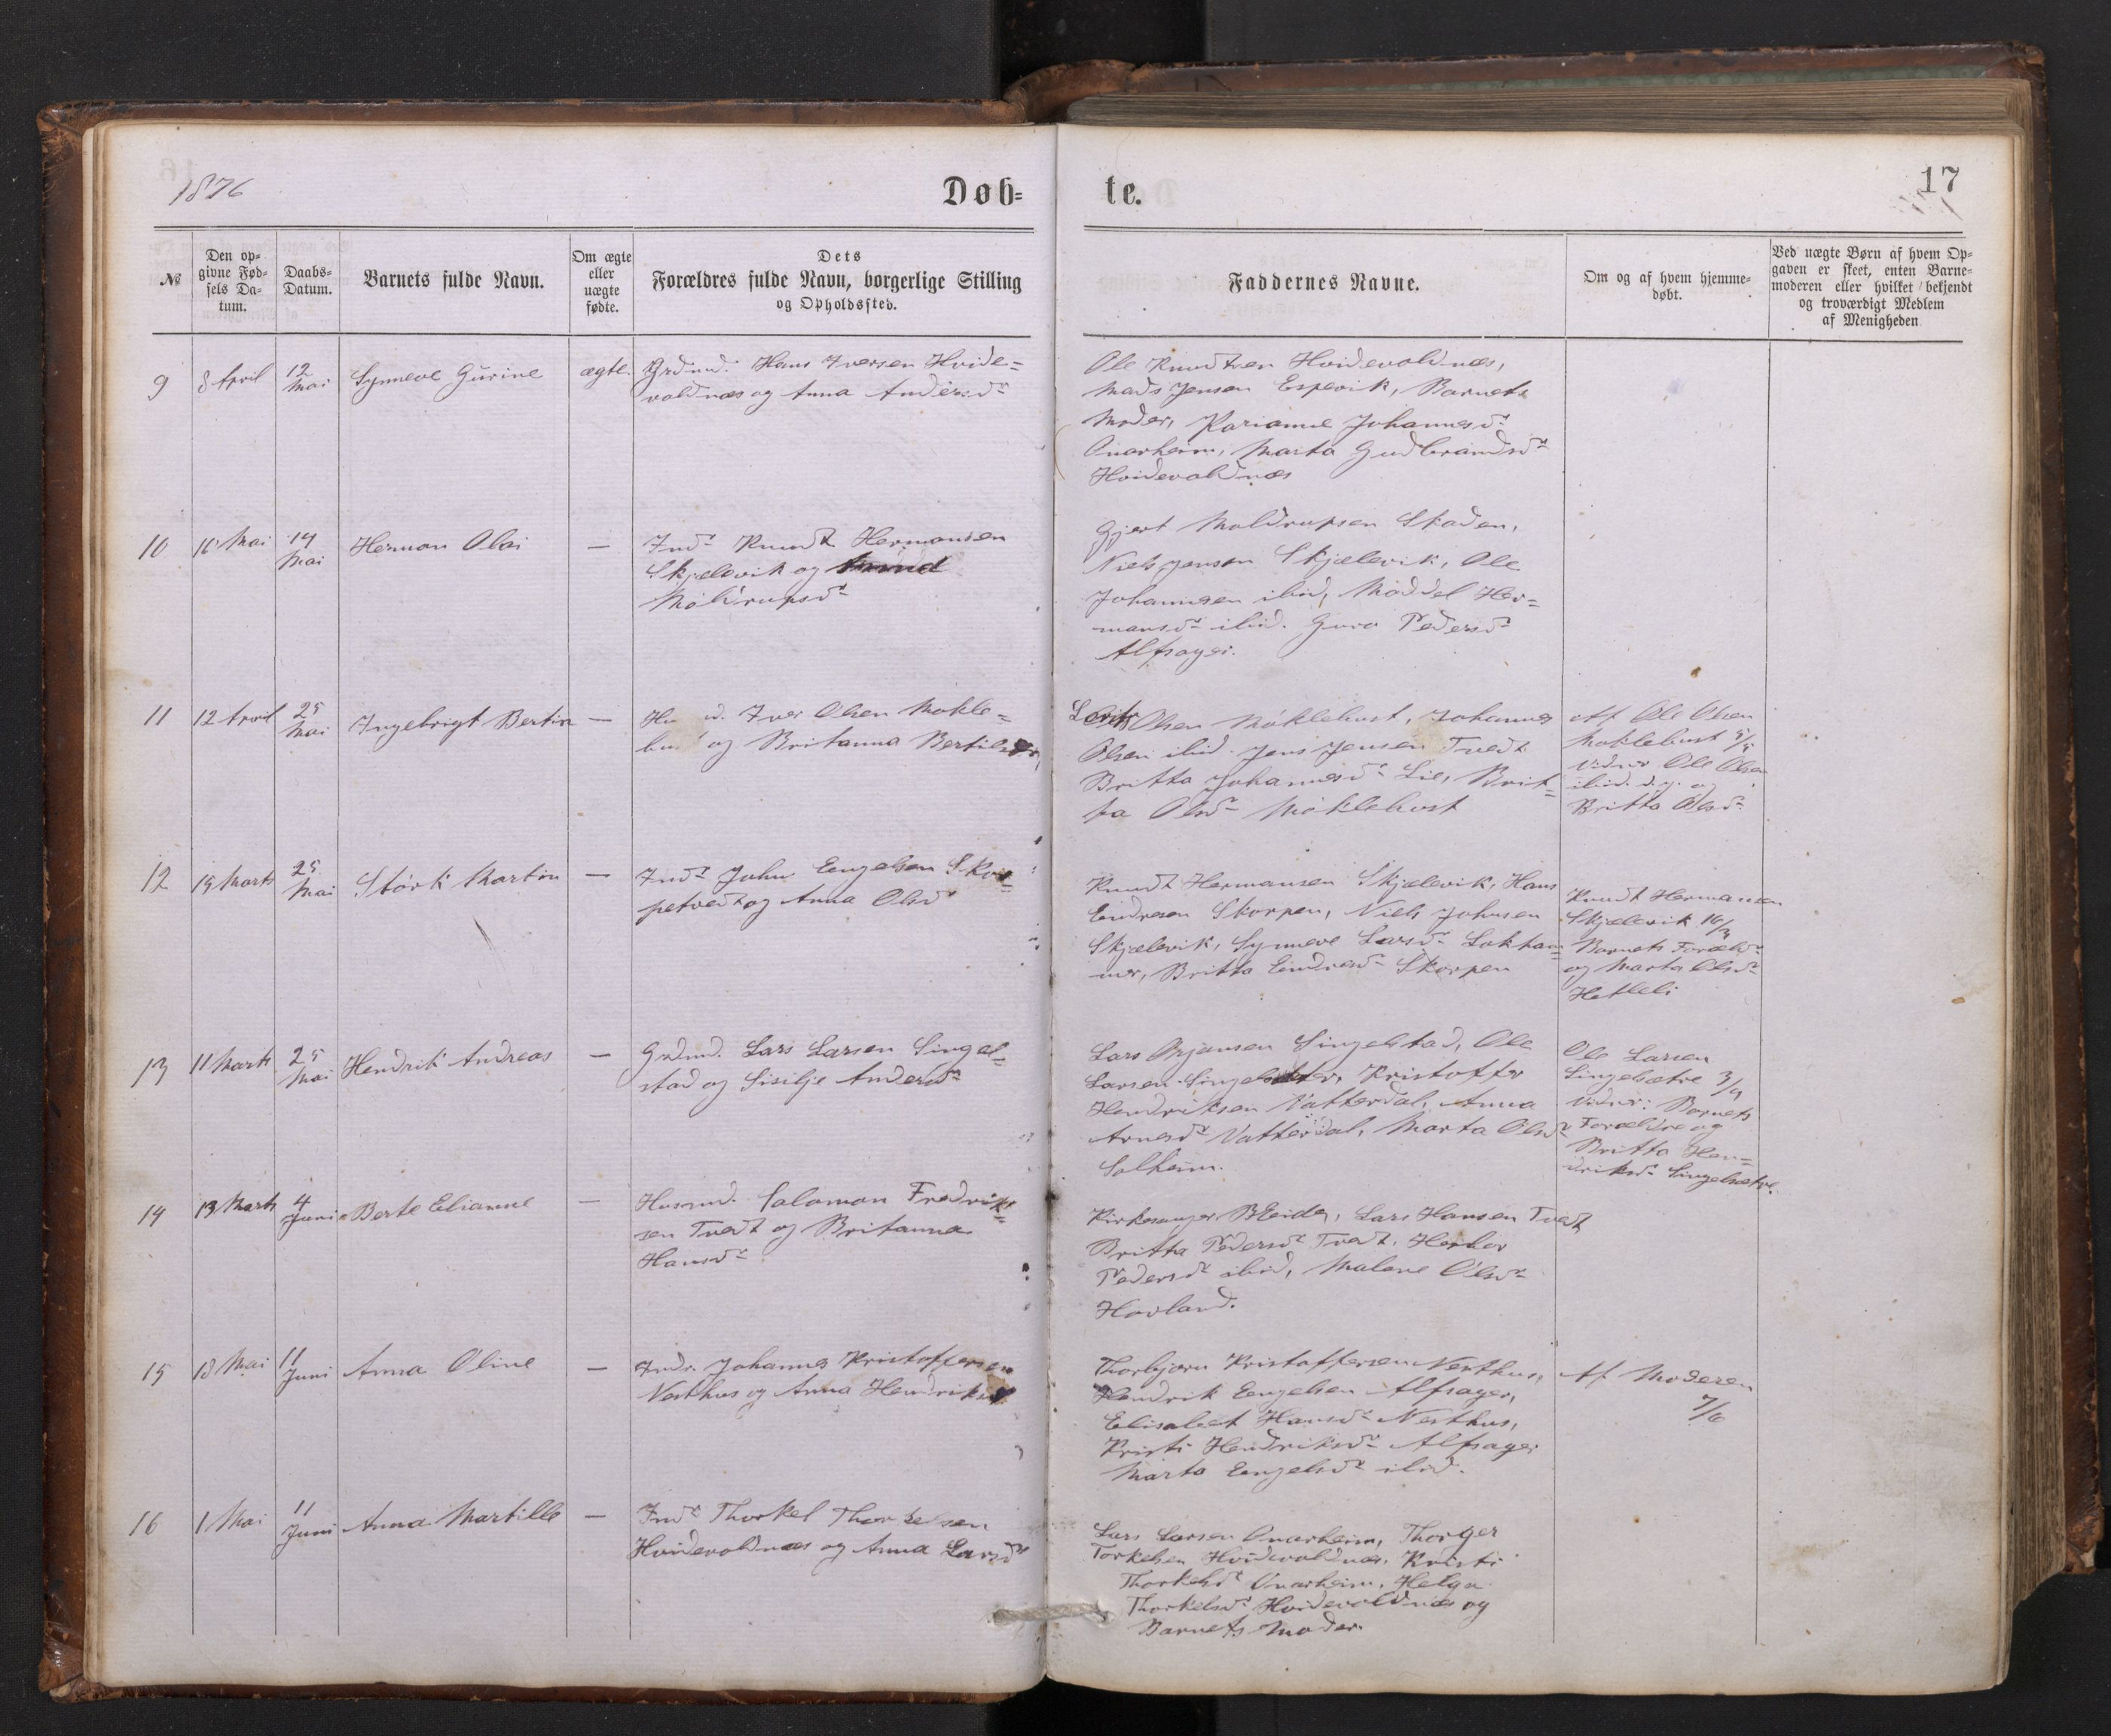 1876
Døb=
te.
17
№
Den op=
givne Fød=
sels Da=
tum.
Daabs=
Datum.
Barnets fulde Navn.
Om ægte
eller
uægte
fødte.
Dets
Forældres fulde Navn, borgerlige Stilling
og Opholdssted.
Faddernes Navne.
Om og af hvem hjemme=
døbt.
Ved uægte Børn af hvem Op=
gaven er skeet, enten Barne=
moderen eller hvilket bekjendt
og troværdigt Medlem
af Menigheden
9
8 April
12
Mai
Synneve Gurine
ægte.
Grdmd. Hans Iversen Hvide=
voldnæs og Anna Andersdr
Ole Knudtsen Hvidevoldnæs,
Mads Jensen Espevik, Barnets
Moder, Karianne Johannesdr
Onarheim, Marta Gudbrandsdr
Hvidevoldnæs
10
16 Mai
19
Mai
Herman Olai
—
Indr Knudt Hermansen
Skjelevik og
Moldrupsdr
Gjert Moldrupsen Skaden,
Niels Jensen Skjelevik, Ole
Johannesen ibid, Moddel Her=
mansdr ibid. Guro Pedersdr
Alfsager.
11
12 April
25
Mai
Ingebrigt Bertin
—
Iver Olsen Møkle=
hust og Britanna Bertilsdr
Olsen Møklehust, Johannes
Olsen ibid. Jens Jensen Tvedt
Britta Johannesdr Lie, Brit=
ta Olsdr Møklehust
Af Ole Olsen
Møklehust
Vidner Ole Olsen
ibid. og
Britta Olsdr
12
19 Marts
25
Mai
Størk Martin
—
Indr John Engelsen Skor=
petvedt og Anna Olsdr
Knudt Hermansen Skjelevik, Hans
Endresen Skorpen, Niels Johnsen
Skjelevik, Synneve Larsdr Lokham=
mer, Britta Endresdr Skorpen
Knudt Hermansen
Skjelevik
Barnets Foræld.
og Marta Olsdr
Hetleli
13
11 Marts
25
Mai
Hendrik Andreas
—
Grdmd. Lars Larsen Singel=
stad og Sisilje Andersdr
Lars Ørjansen Singelstad, Ole
Larsen Singelsæter, Kristoffer
Hendriksen Vatterdal, Anna
Arnesdr Vatterdal, Marta Olsdr
Solheim.
Ole Larsen
Singelsætre 3/4
Vidner: Barnets
Forældre og
Britta Hen=
driksdr Singelsætre.
14
13 Marts
4
Juni
Berte Elianne
—
Husmd. Salomon Fredrik=
sen Tvedt og Britanna
Hansdr
Kirkesanger B Eide, Lars Hansen Tvedt
Britta Pedersdr Tvedt. Herbor
Pedersdr ibid, Malene Olsdr
Hovland.
15
18 Mai
11
Juni
Anna Oline
—
Indr. Johannes Kristoffersen
Nesthus og Anna Hendriksdr
Thorbjørn Kristoffersen Nesthus,
Hendrik Engelsen Alfsager,
Elisabet Hansdr Nesthus,
Kristi Hendriksdr Alfsager
Marta Engelsdr ibid.
Af Moderen
7/6
16
1 Mai
11
Juni
Anna Martille
—
Indr Thorkel Thorkelsen
Hvidevoldnæs og Anna Larsdr
Lars Larsen Onarheim, Thorger
Torkelsen Hvidevoldnæs, Kristi
Thorkelsdr Onarheim, Helga
Thorkelsdr Hvidevoldnæs og
Barnets Moder.